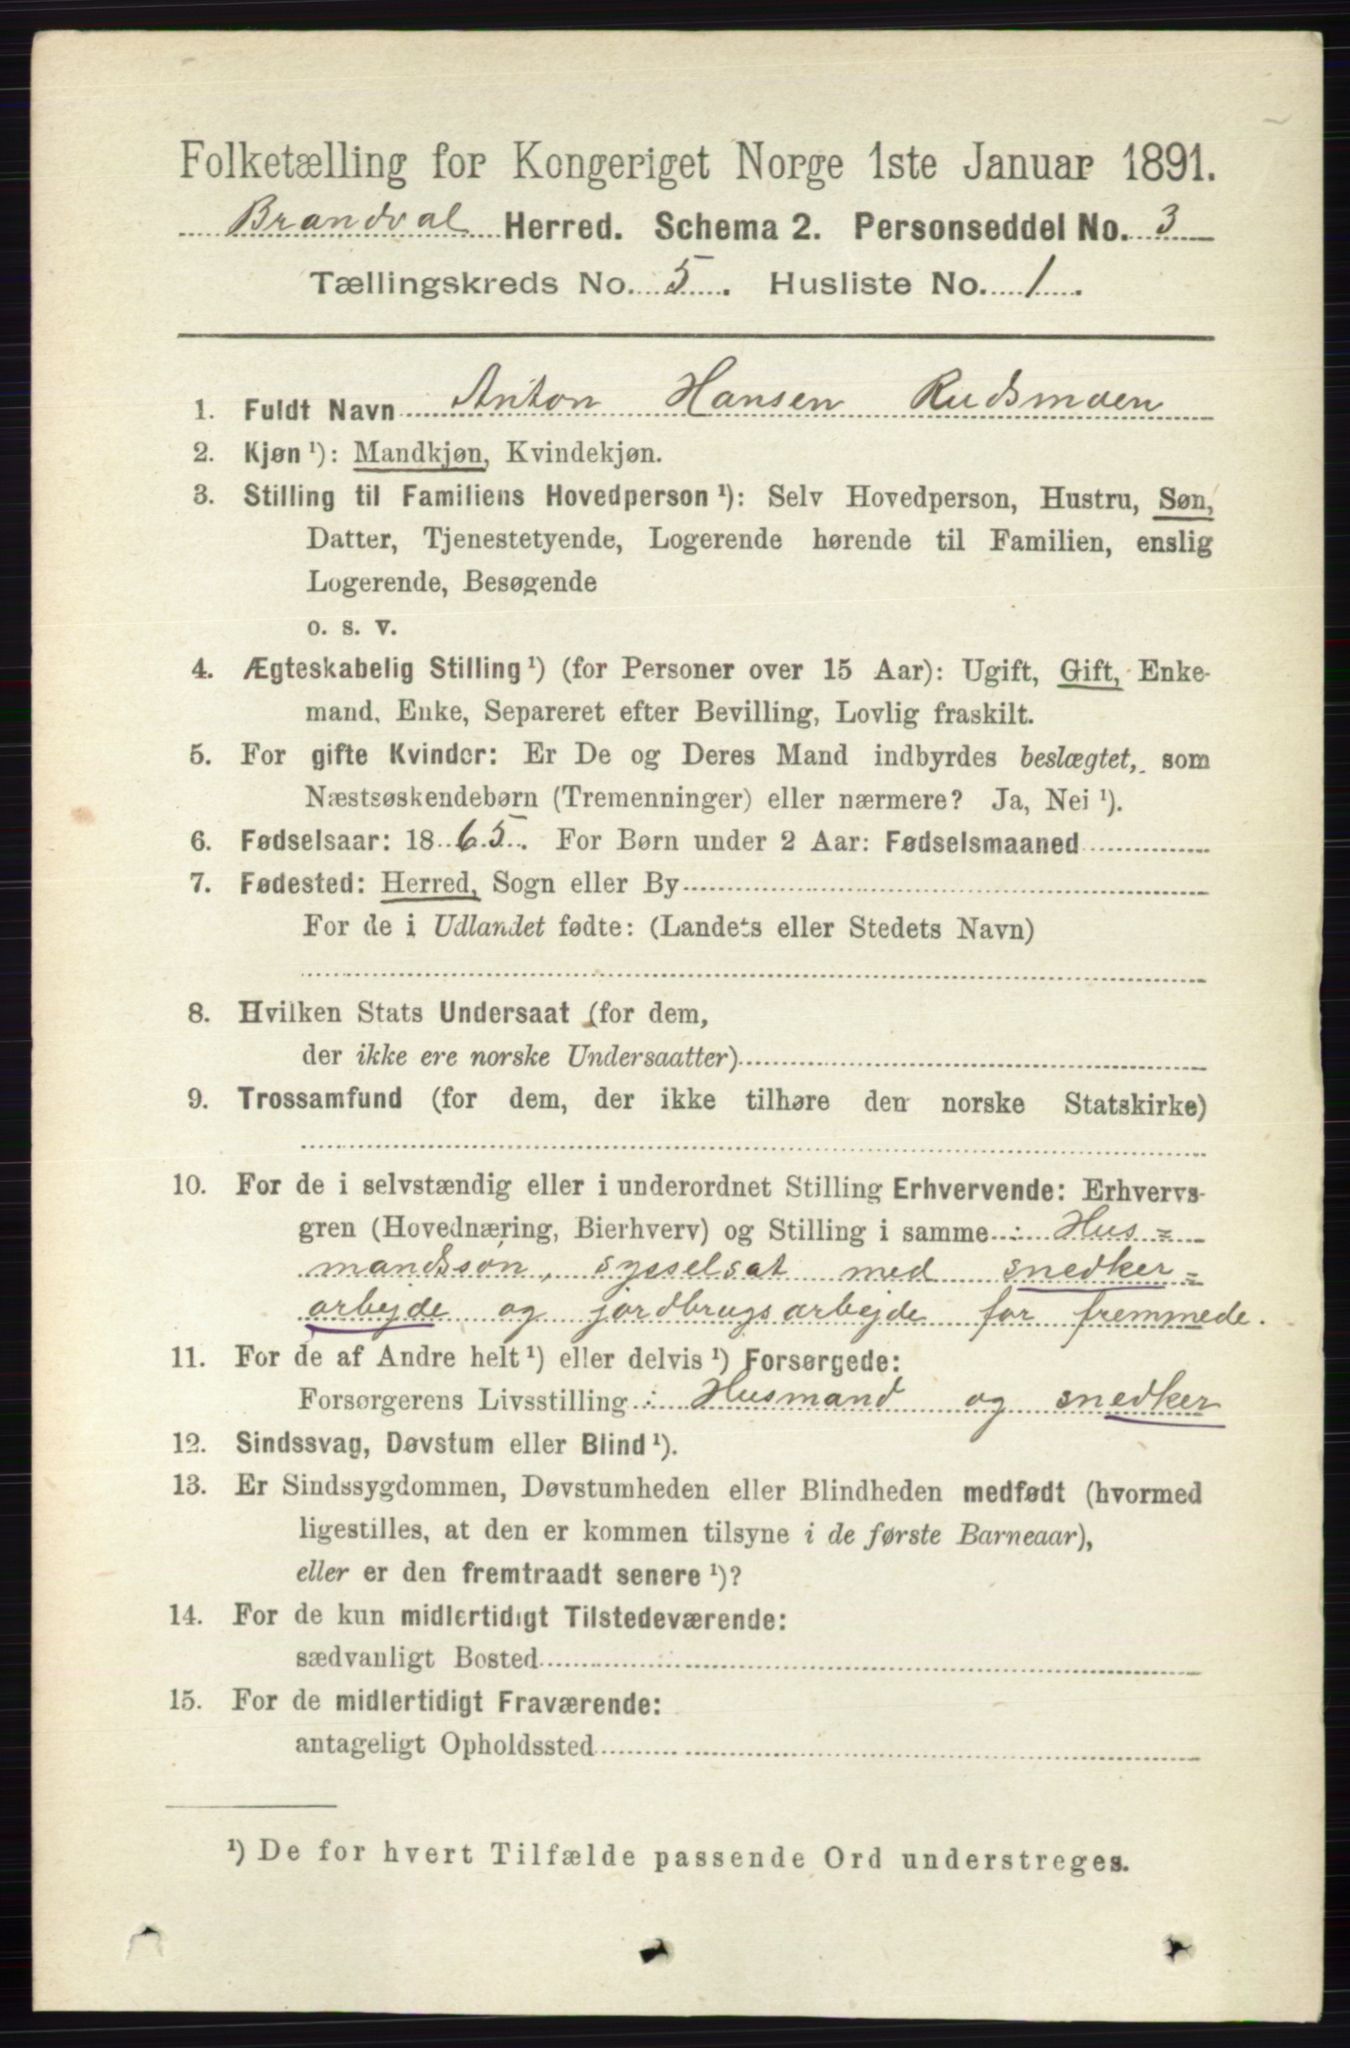 Folketælling for Kongeriget Norge 1ste Januar 1891.
Brandval Herred. Schema 2. Personseddel No. 3
Tællingskreds No. 5. Husliste No. 1.
1. Fuldt Navn Anton Hansen Rudsmoen
2. Kjøn ¹): Mandkjøn, Kvindekjøn.
3. Stilling til Familiens Hovedperson ¹): Selv Hovedperson, Hustru, Søn,
Datter, Tjenestetyende, Logerende hørende til Familien, enslig
Logerende, Besøgende
o. s. v.
4. Ægteskabelig Stilling ¹) (for Personer over 15 Aar): Ugift, Gift, Enke-
mand, Enke, Separeret efter Bevilling, Lovlig fraskilt.
5. For gifte Kvinder: Er De og Deres Mand indbyrdes beslægtet, som
Næstsøskendebørn (Tremenninger) eller nærmere? Ja, Nei ¹).
6. Fødselsaar: 1865. For Børn under 2 Aar: Fødselsmaaned
7. Fødested: Herred, Sogn eller By
For de i Udlandet fødte: (Landets eller Stedets Navn)
8. Hvilken Stats Undersaat (for dem,
der ikke ere norske Undersaatter)
9. Trossamfund (for dem, der ikke tilhøre den norske Statskirke)
10. For de i selvstændig eller i underordnet Stilling Erhvervende: Erhvervs-
gren (Hovednæring, Bierhverv) og Stilling i samme : Hus=
mandssøn, sysselsat med snedker=
arbejde og jordbrugsarbejde for fremmede.
11. For de af Andre helt ¹) eller delvis ¹) Forsørgede:
Forsørgerens Livsstilling : Husmand og snedker
12. Sindssvag, Døvstum eller Blind ¹).
13. Er Sindssygdommen, Døvstumheden eller Blindheden medfødt (hvormed
ligestilles, at den er kommen tilsyne i de første Barneaar),
eller er den fremtraadt senere ¹)?
14. For de kun midlertidigt Tilstedeværende:
sædvanligt Bosted
15. For de midlertidigt Fraværende:
antageligt Opholdssted
¹) De for hvert Tilfælde passende Ord understreges.